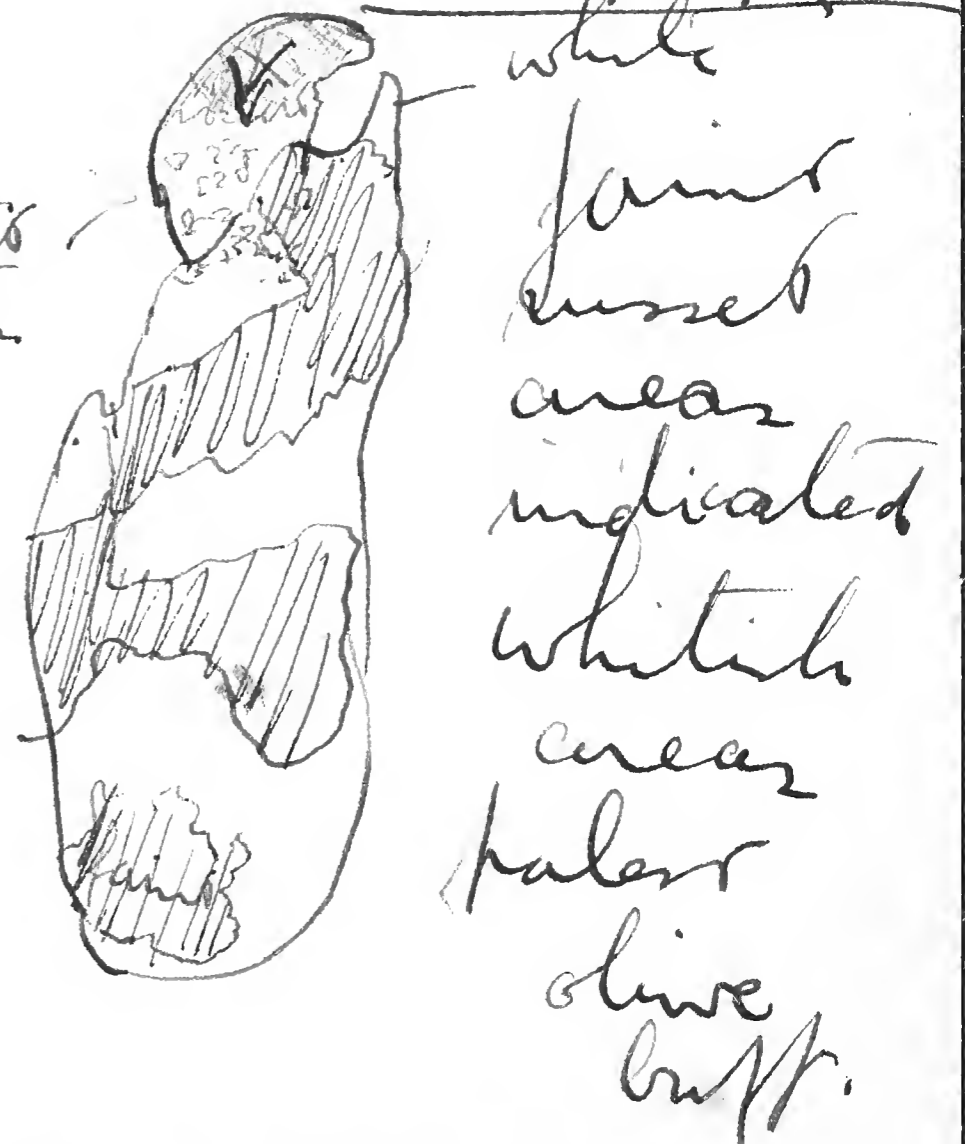 white
faint
russet
areas
indicated
whitish
areas
palest
olive
buff.
faint